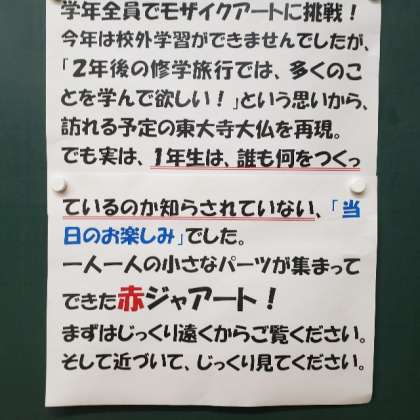 学年全員でモザイクアートに挑戦！
今年は校外学習ができませんでしたが、
「２年後の修学旅行では、多くのこ
とを学んで欲しい！」という思いから、
訪れる予定の東大寺大仏を再現。
でも実は、１年生は、誰も何をつくっ
ているのか知らされていない、「当
日のお楽しみ」でした。
一人一人の小さなパーツが集まって
できた赤ジャアート！
まずはじっくり遠くからご覧ください。
そして近づいて、じっくり見てください。